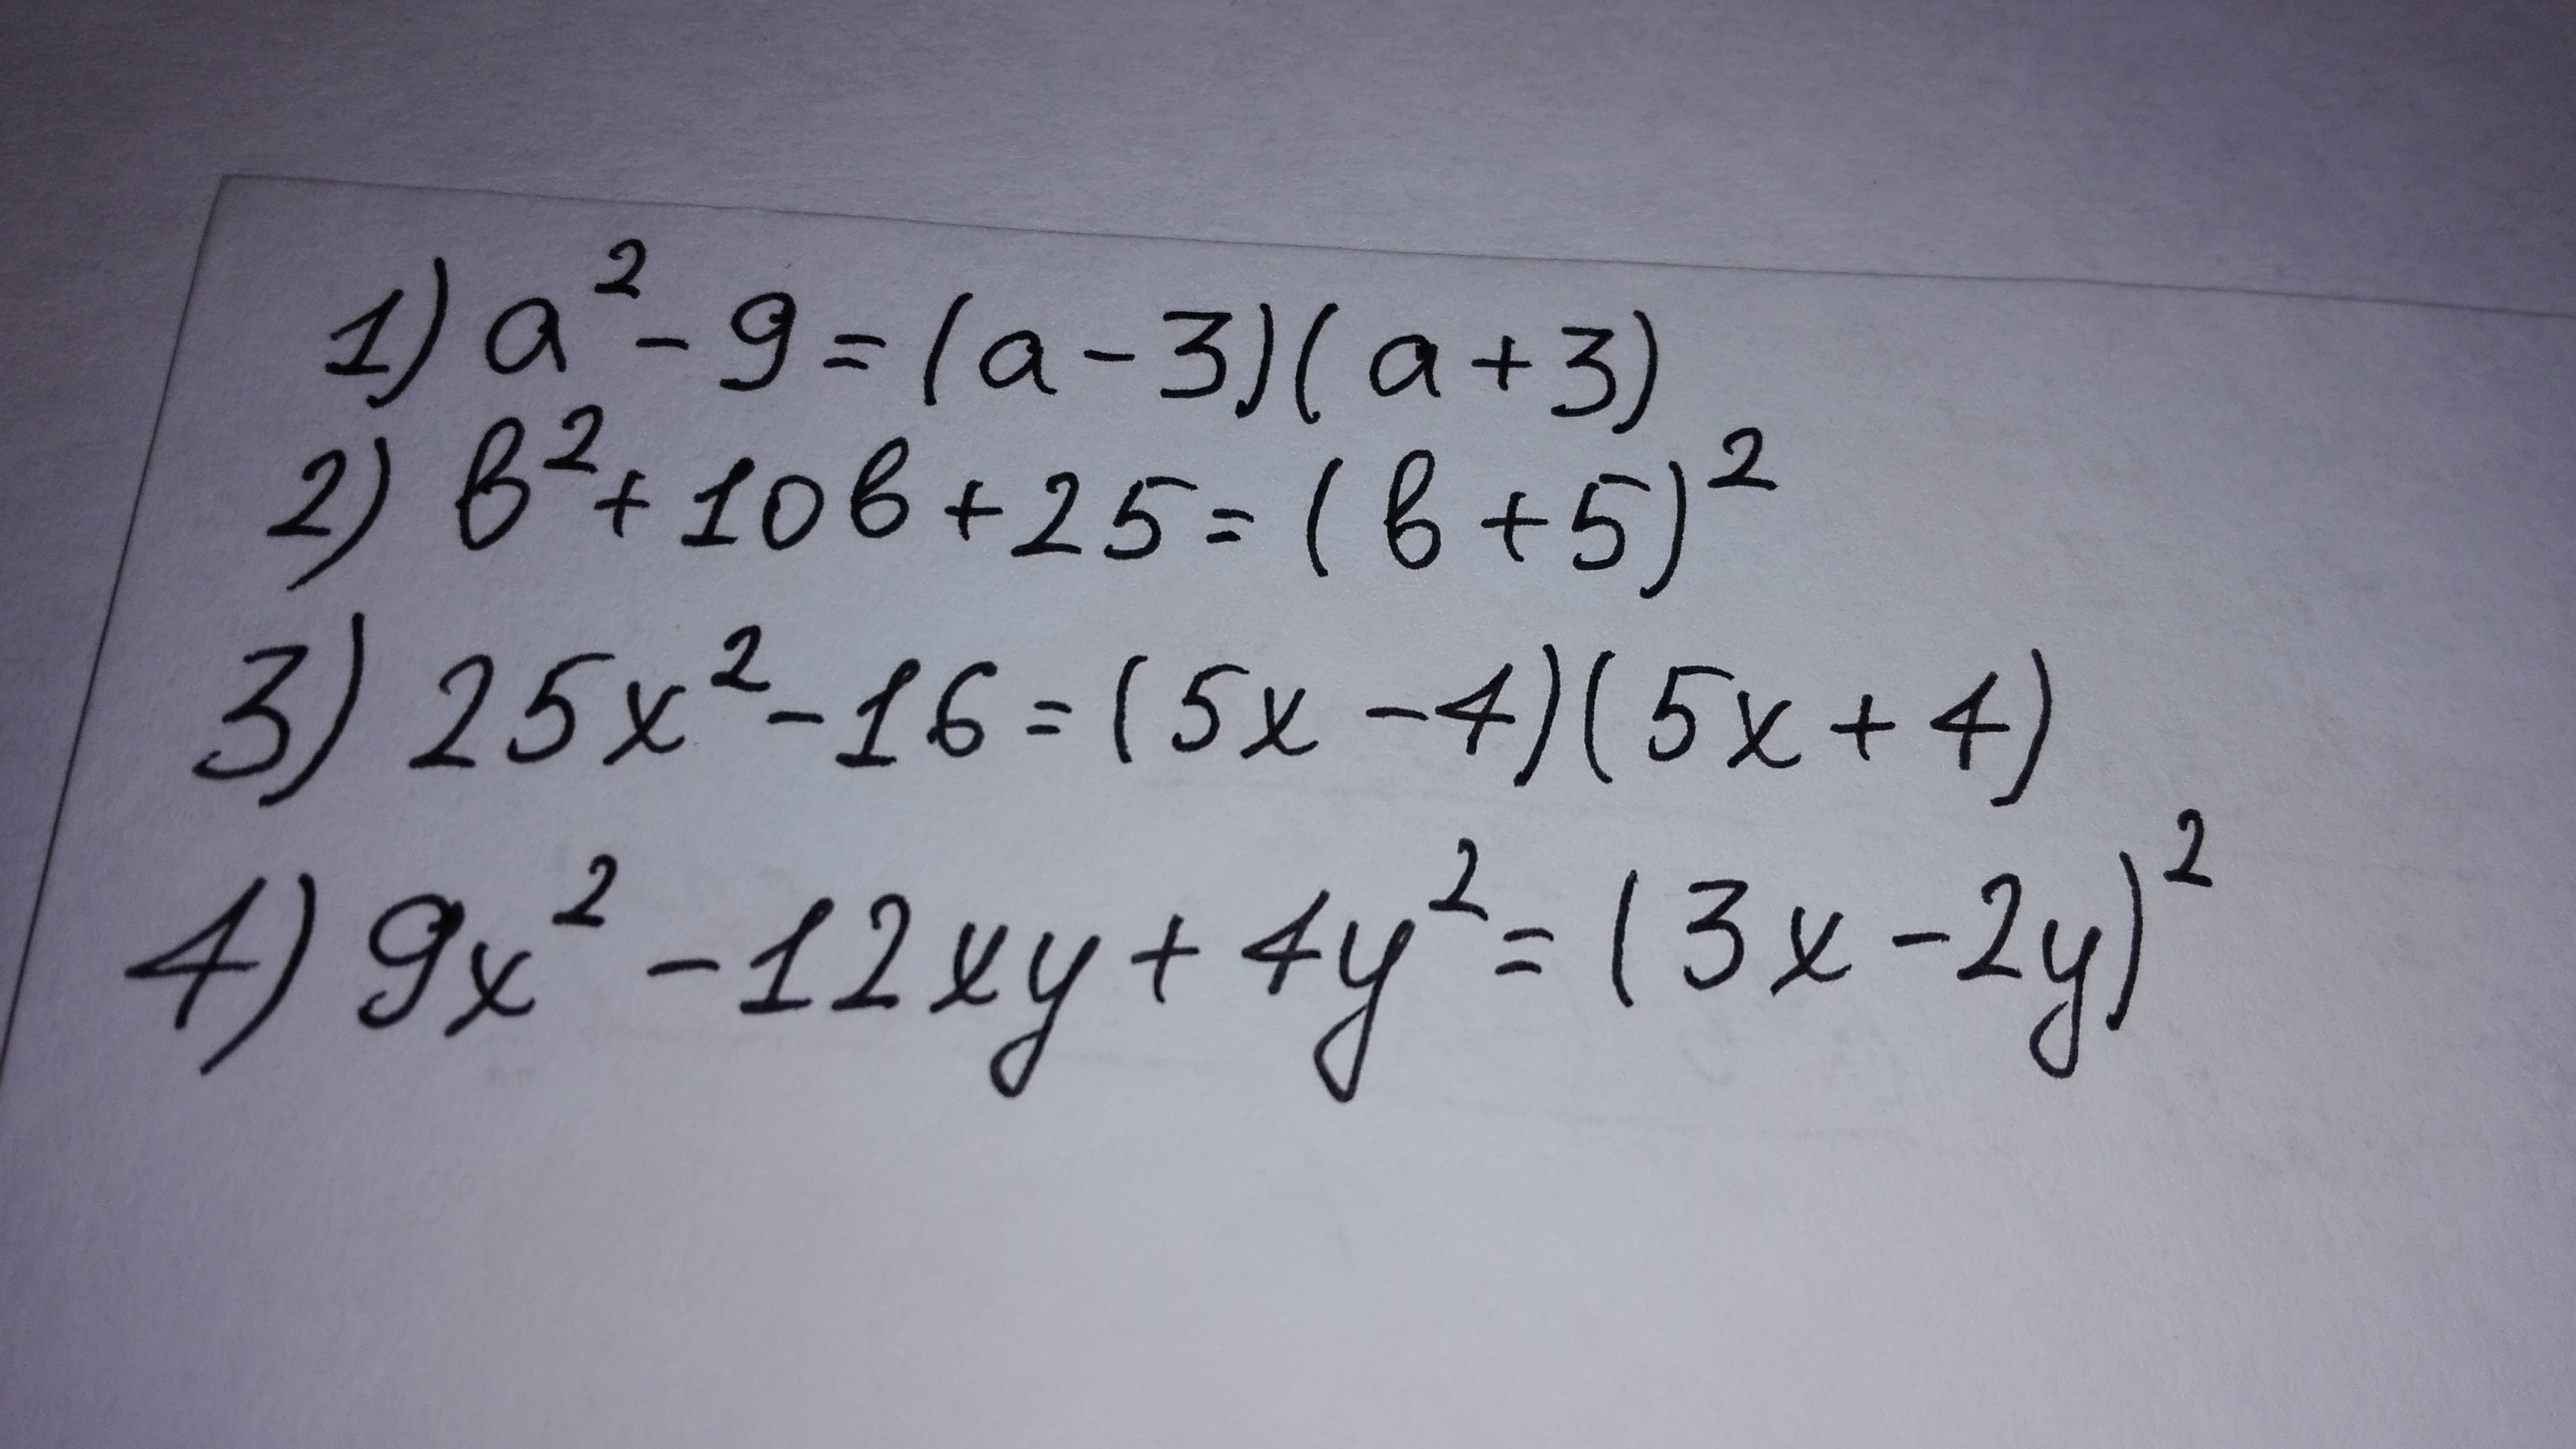 1) a² - 9 = (a - 3)(a + 3)
2) в² + 10в + 25 = (в + 5)²
3) 25x² - 16 = (5x - 4)(5x + 4)
4) 9x² - 12xy + 4y² = (3x - 2y)²